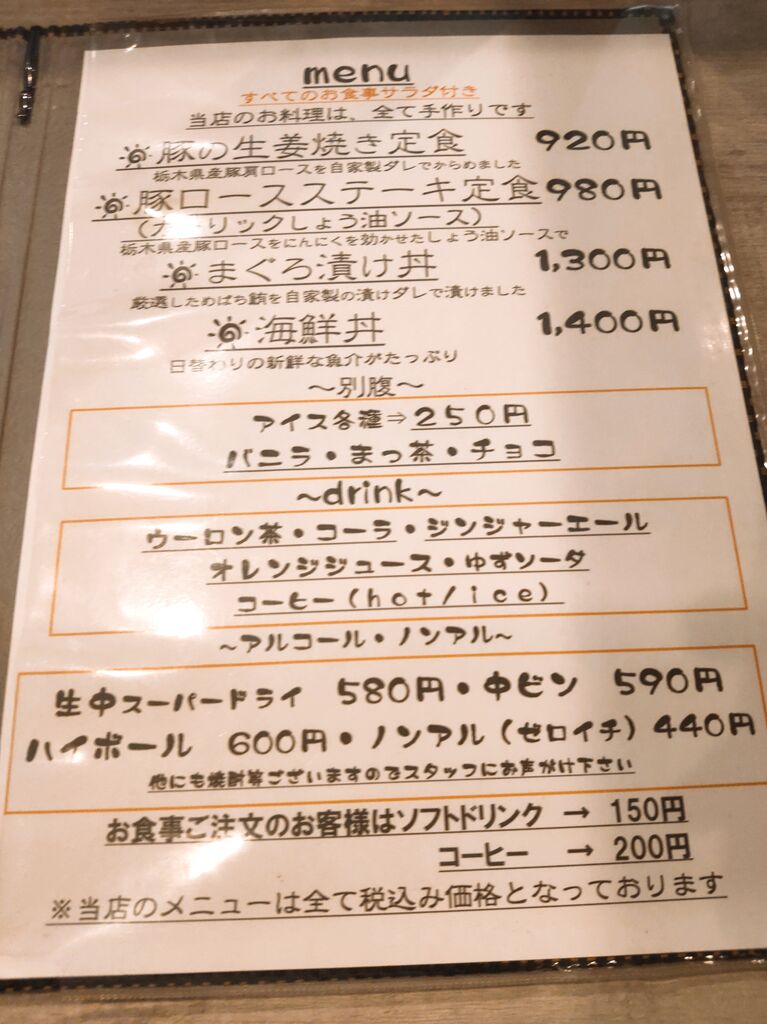 menu
すべてのお食事サラダ付き
当店のお料理は、全て手作りです
豚の生姜焼き定食 920円
栃木県産豚肩ロースを自家製ダレでからめました
豚ロースステーキ定食 980円
(ガーリックしょう油ソース)
栃木県産豚ロースをにんにくを効かせたしょう油ソースで
まぐろ漬け丼 1,300円
厳選しためばち鮪を自家製の漬けダレで漬けました
海鮮丼 1,400円
日替わりの新鮮な魚介がたっぷり
〜別腹〜
アイス各種⇒250円
バニラ・まっ茶・チョコ
〜drink〜
ウーロン茶・コーラ・ジンジャーエール
オレンジジュース・ゆずソーダ
コーヒー(hot/ice)
〜アルコール・ノンアル〜
生中スーパードライ 580円・中ビン 590円
ハイボール 600円・ノンアル(ゼロイチ)440円
他にも焼酎等ございますのでスタッフにお声がけ下さい
お食事ご注文のお客様はソフトドリンク → 150円
コーヒー → 200円
※当店のメニューは全て税込み価格となっております